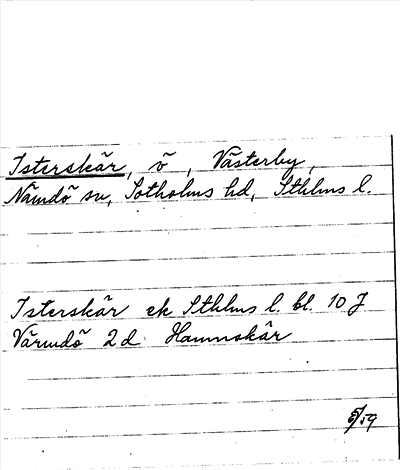 Isterskär, ö, Västerby,
Nämdö sn, Sotholms hd, Sthlms l.
Isterskär ek Sthlms l. bl. 10 J
Värmdö 2 d Hamnskär